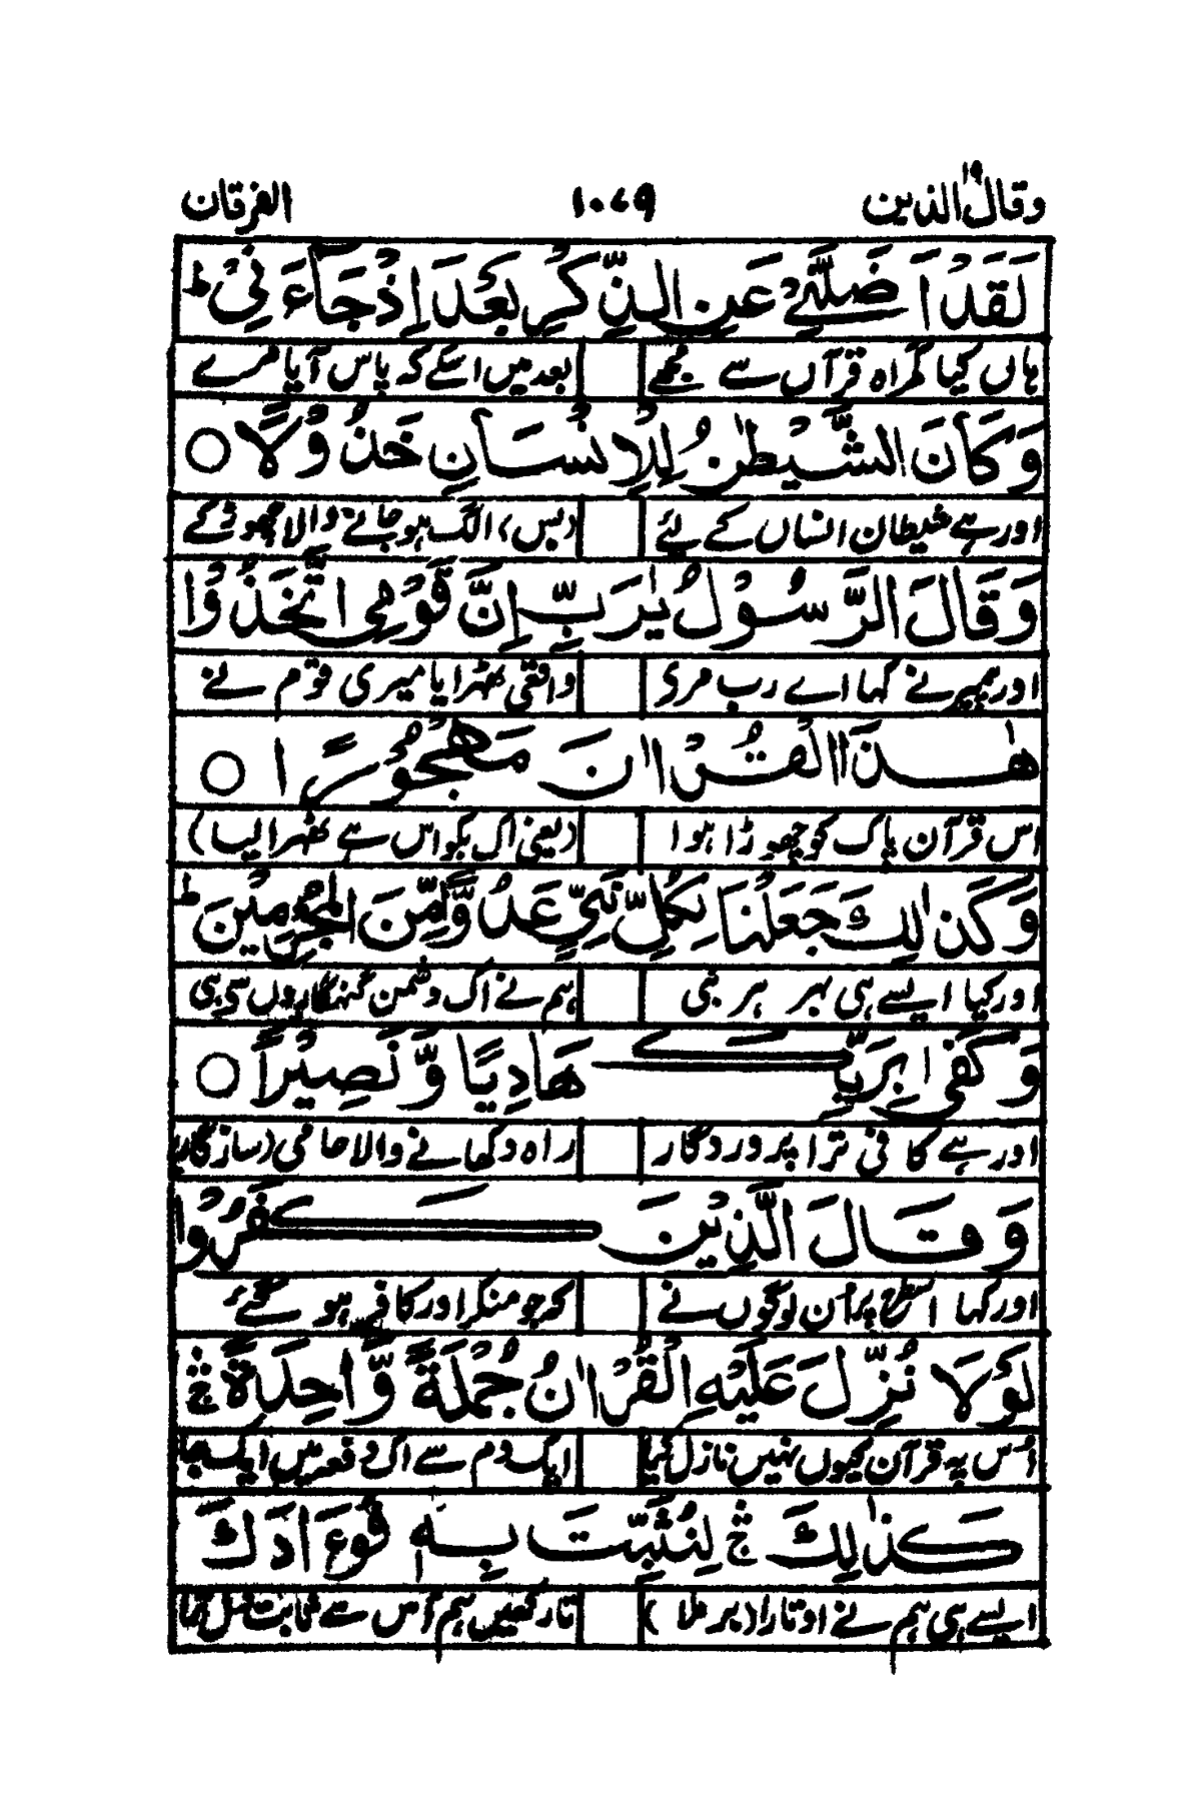 وقال الذین ۱۹ ۱۰۷۹ الفرقان
لَقَدْ اَضَلَّنِیْ عَنِ الذِّكْرِ بَعْدَ اِذْ جَآءَنِیْ ؕ
ہاں کیا گمراہ قرآں سے مجھے بعد میں اسکے کہ پاس آیا مرے
وَكَانَ الشَّیْطٰنُ لِلْاِنْسَانِ خَذُوْلًا ○
اور ہے شیطان انساں کے لئے (بس) الگ ہو جانے والا چھوڑ کے
وَقَالَ الرَّسُوْلُ یٰرَبِّ اِنَّ قَوْمِی اتَّخَذُوْا
اور پیمبر نے کہا اے رب مری واقعی ٹھہرایا میری قوم نے
هٰذَا الْقُرْاٰنَ مَهْجُوْرًا ○
اس قرآن پاک کو چھوڑا ہوا (یعنی اک بکواس ہے ٹھہرا لیا)
وَكَذٰلِكَ جَعَلْنَا لِكُلِّ نَبِیٍّ عَدُوًّا مِّنَ الْمُجْرِمِیْنَ ؕ
اور کیا ایسے ہی بہر ہر نبی ہم نے اک دشمن گنہگاروں سے ہی
وَكَفٰی بِرَبِّكَ هَادِیًا وَّنَصِیْرًا ○
اور ہے کافی ترا پروردگار راہ دکھانے والا حامی (سازگار)
وَقَالَ الَّذِیْنَ كَفَرُوْا
اور کہا اسطرح پر اُن لوگوں نے کہ جو منکر اور کافر ہو گئے
لَوْلَا نُزِّلَ عَلَیْهِ الْقُرْاٰنُ جُمْلَةً وَّاحِدَةً ۛۚ
اُس پہ قرآن کیوں نہیں نازل کیا ایک دم سے اک دفعہ میں ایک جا
كَذٰلِكَ ۛۚ لِنُثَبِّتَ بِهٖ فُؤَادَكَ
ایسے ہی ہم نے اوتارا (برملا) تا رکھیں ہم اُس سے ثابت دل ترا